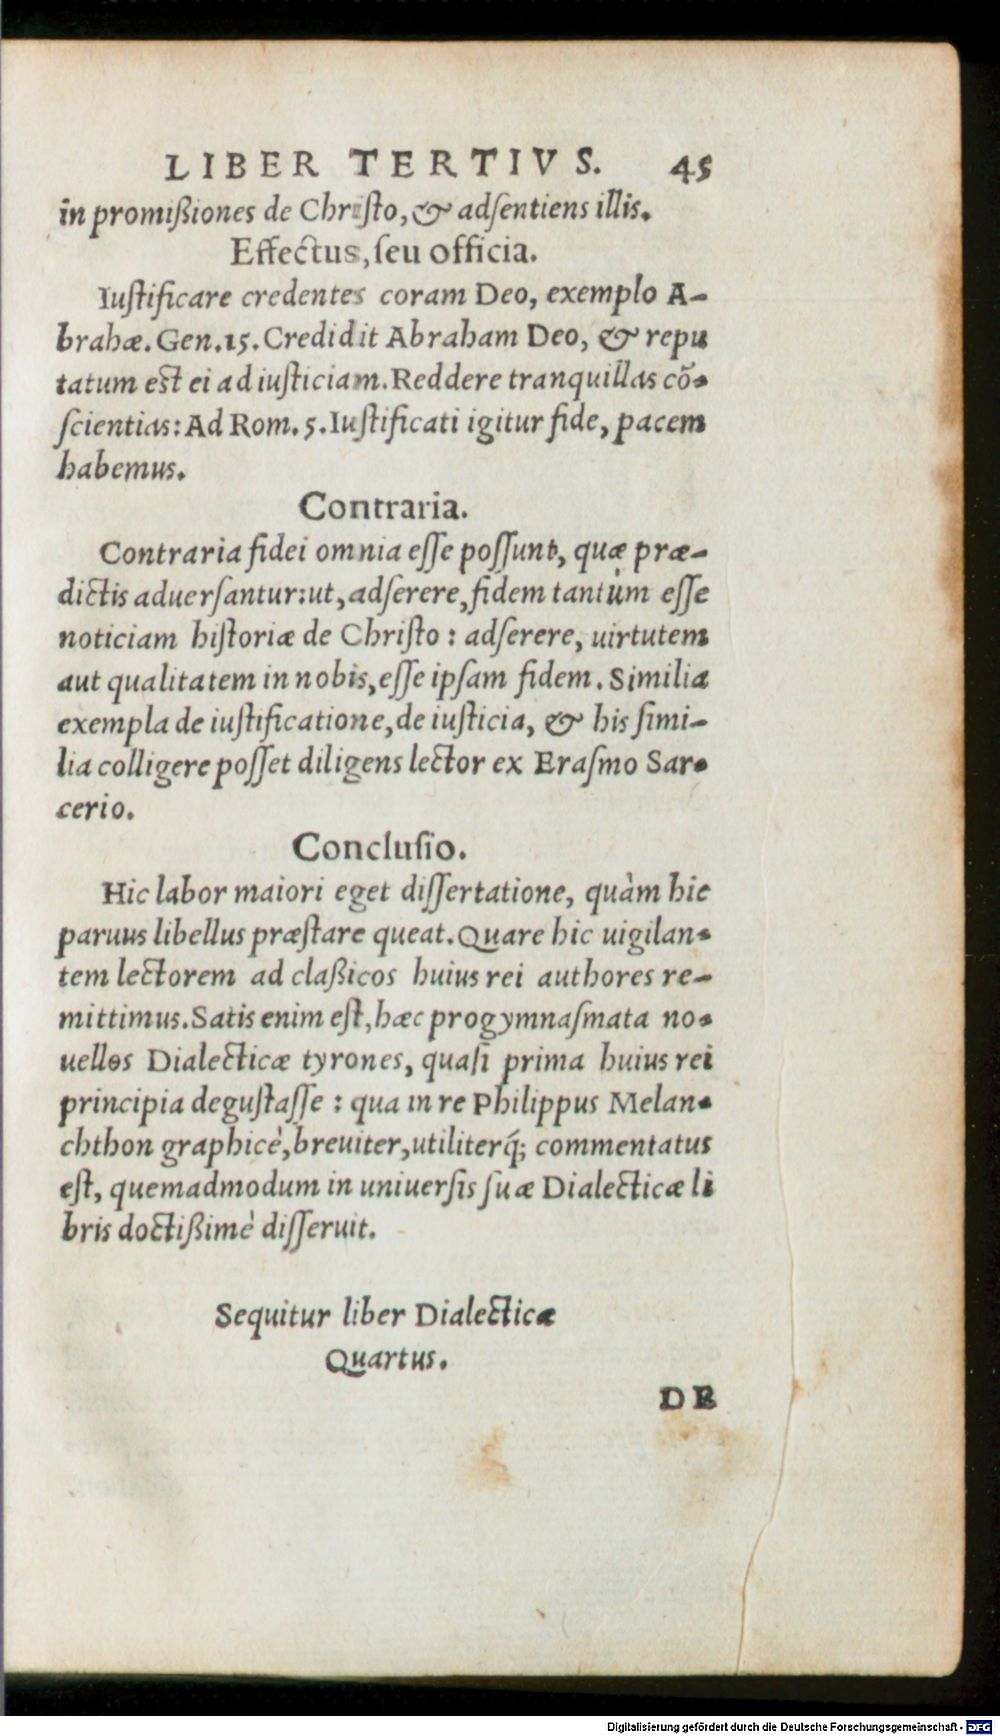 LIBER TERTIVS. 45
in promißiones de Chriſto, & adſentiens illis.
Effectus, ſeu officia.
Iuſtificare credentes coram Deo, exemplo A-
brahæ. Gen. 15. Credidit Abraham Deo, & repu
tatum eſt ei ad iuſticiam. Reddere tranquillas cō-
ſcientias: Ad Rom. 5. Iuſtificati igitur fide, pacem
habemus.
Contraria.
Contraria fidei omnia eſſe poſſunt, quæ præ-
dictis aduerſantur: ut, adſerere, fidem tantùm eſſe
noticiam hiſtoriæ de Chriſto : adſerere, uirtutem
aut qualitatem in nobis, eſſe ipſam fidem. Similia
exempla de iuſtificatione, de iuſticia, & his ſimi-
lia colligere poſſet diligens lector ex Eraſmo Sar-
cerio.
Concluſio.
Hic labor maiori eget diſſertatione, quàm hic
paruus libellus præſtare queat. Quare hic uigilan-
tem lectorem ad claßicos huius rei authores re-
mittimus. Satis enim eſt, hæc progymnaſmata no-
uellos Dialecticæ tyrones, quaſi prima huius rei
principia deguſtaſſe : qua in re Philippus Melan-
chthon graphicè, breuiter, utiliterq́; commentatus
eſt, quemadmodum in uniuerſis ſuæ Dialecticæ li
bris doctißimè diſſeruit.
Sequitur liber Dialecticæ
Quartus.
DE
Digitalisierung gefördert durch die Deutsche Forschungsgemeinschaft - DFG